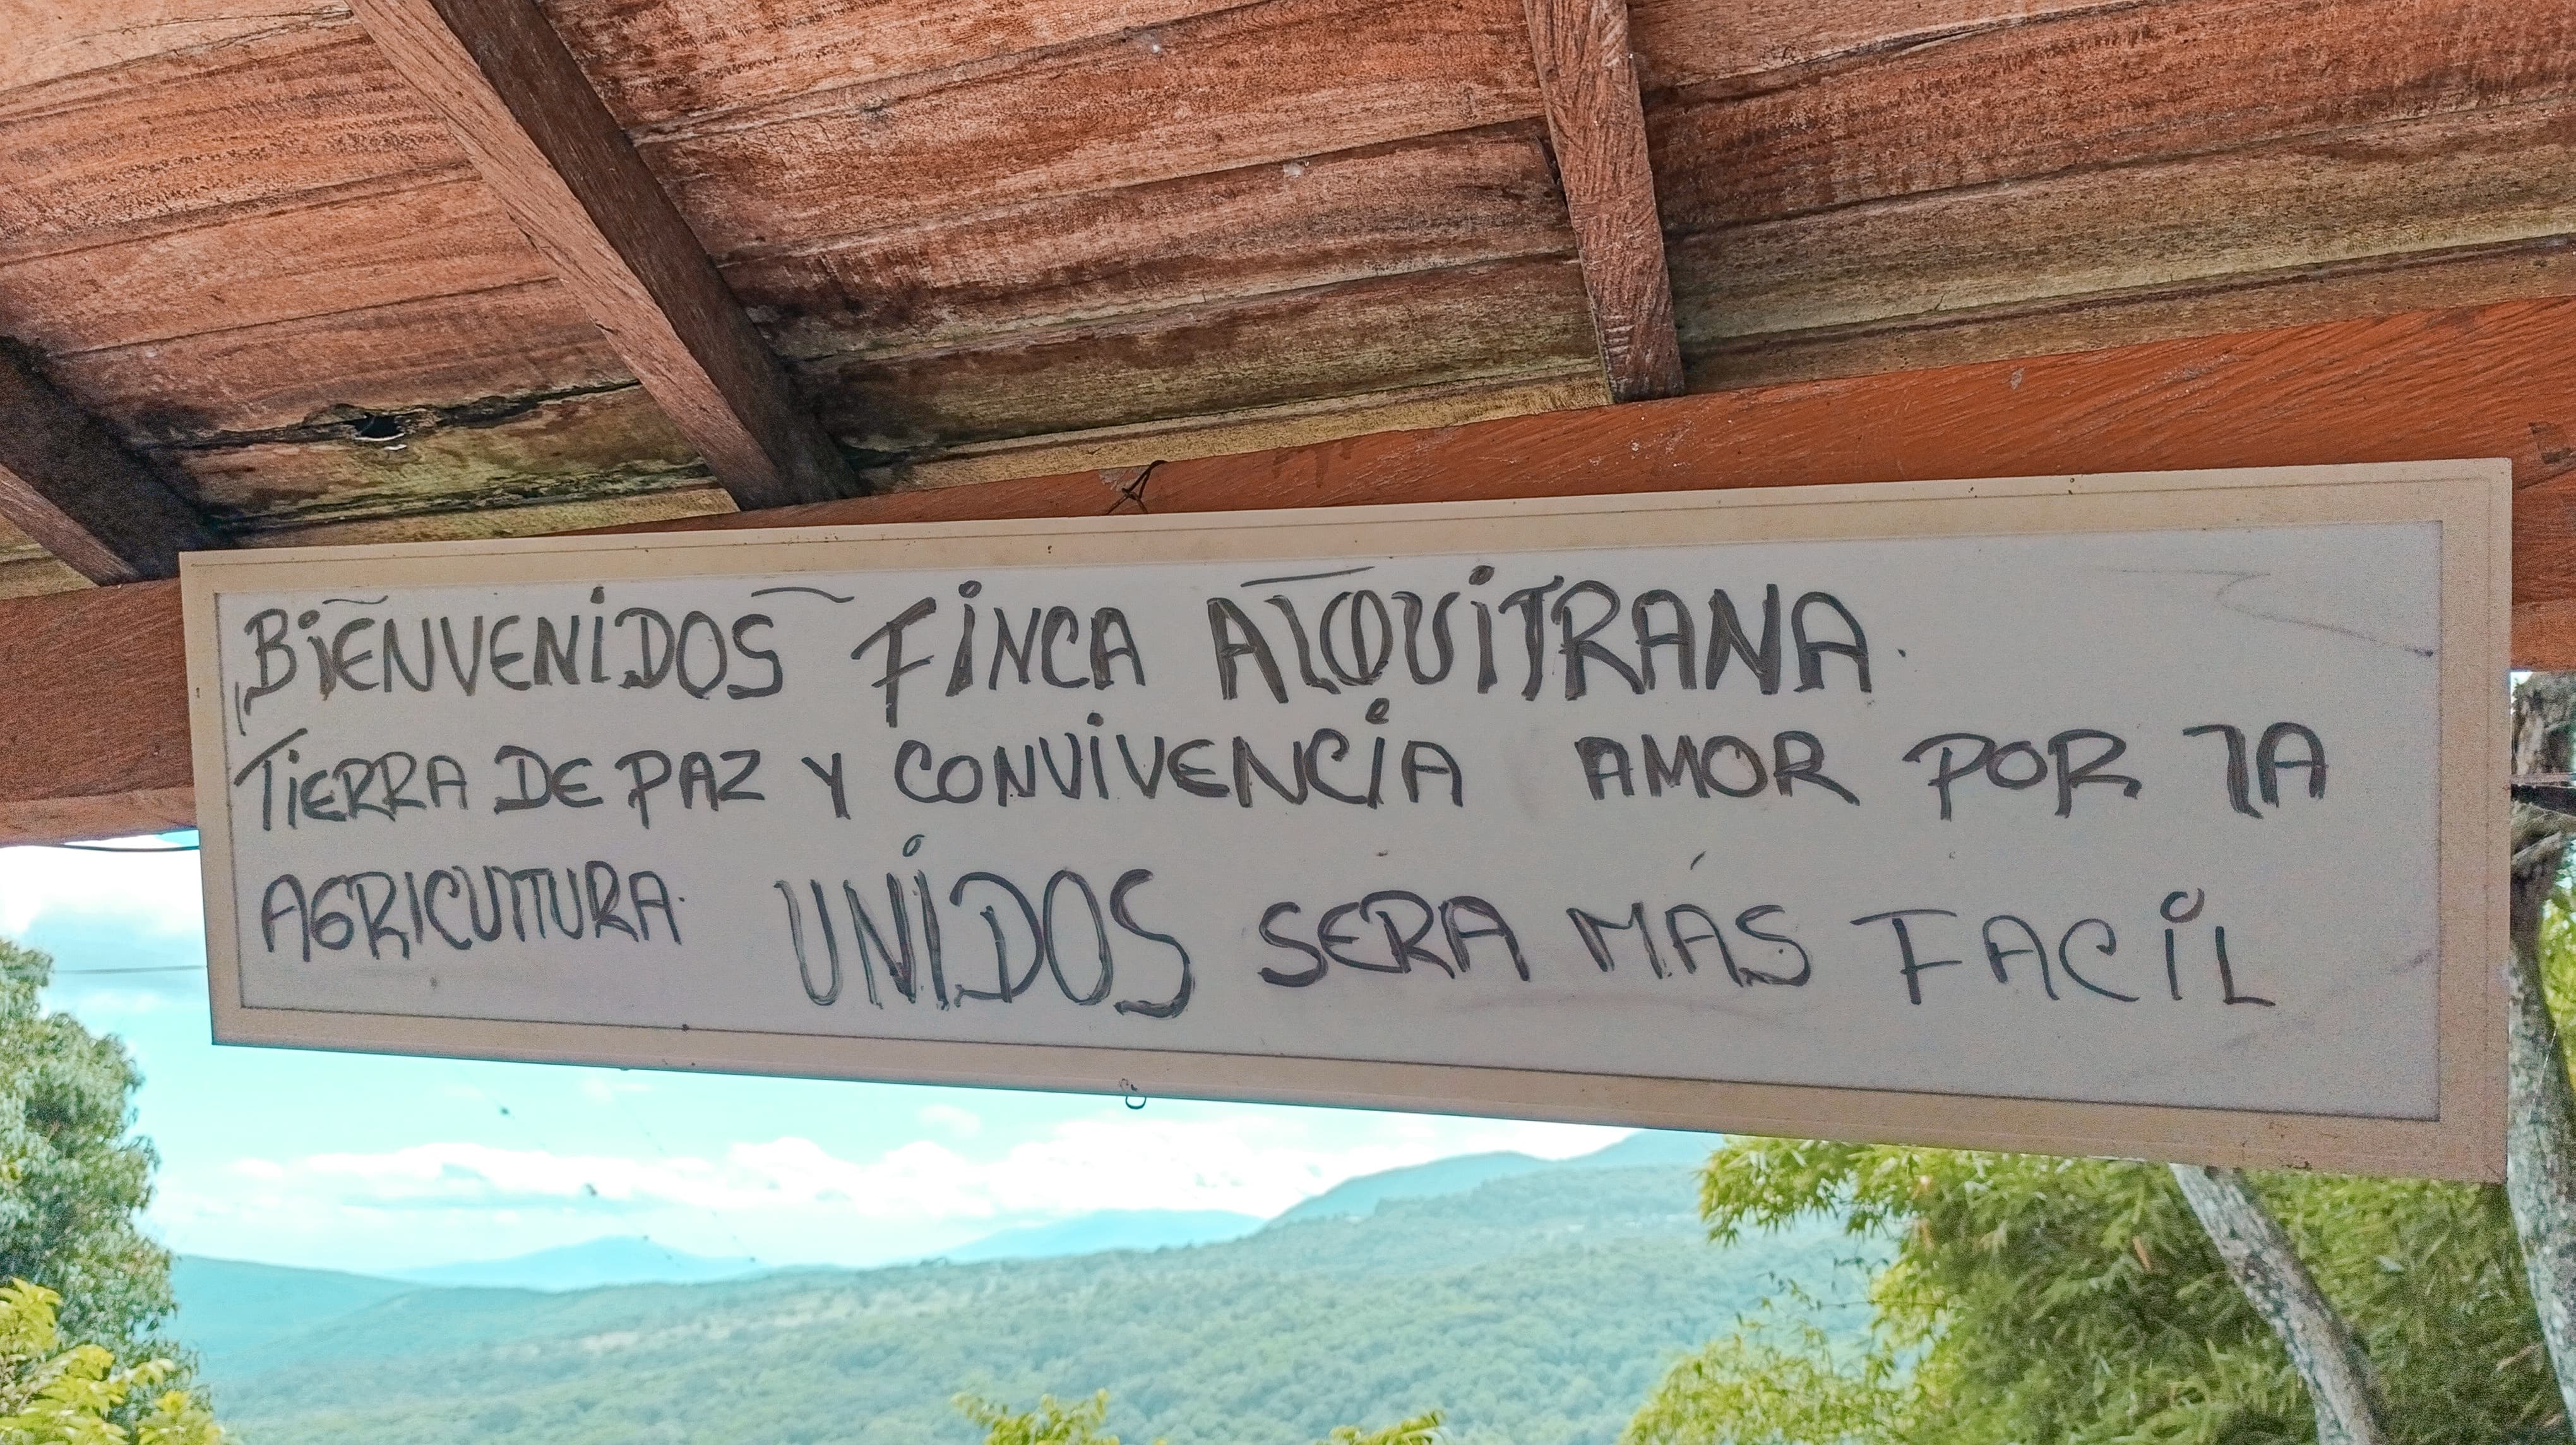 BiENVENiDOS FiNCA AlQUiTRANA.
TiERRA DE PAZ Y CONViVENCiA AMOR POR lA
AGRICUlTURA. UNiDOS SERA MÁS FACiL